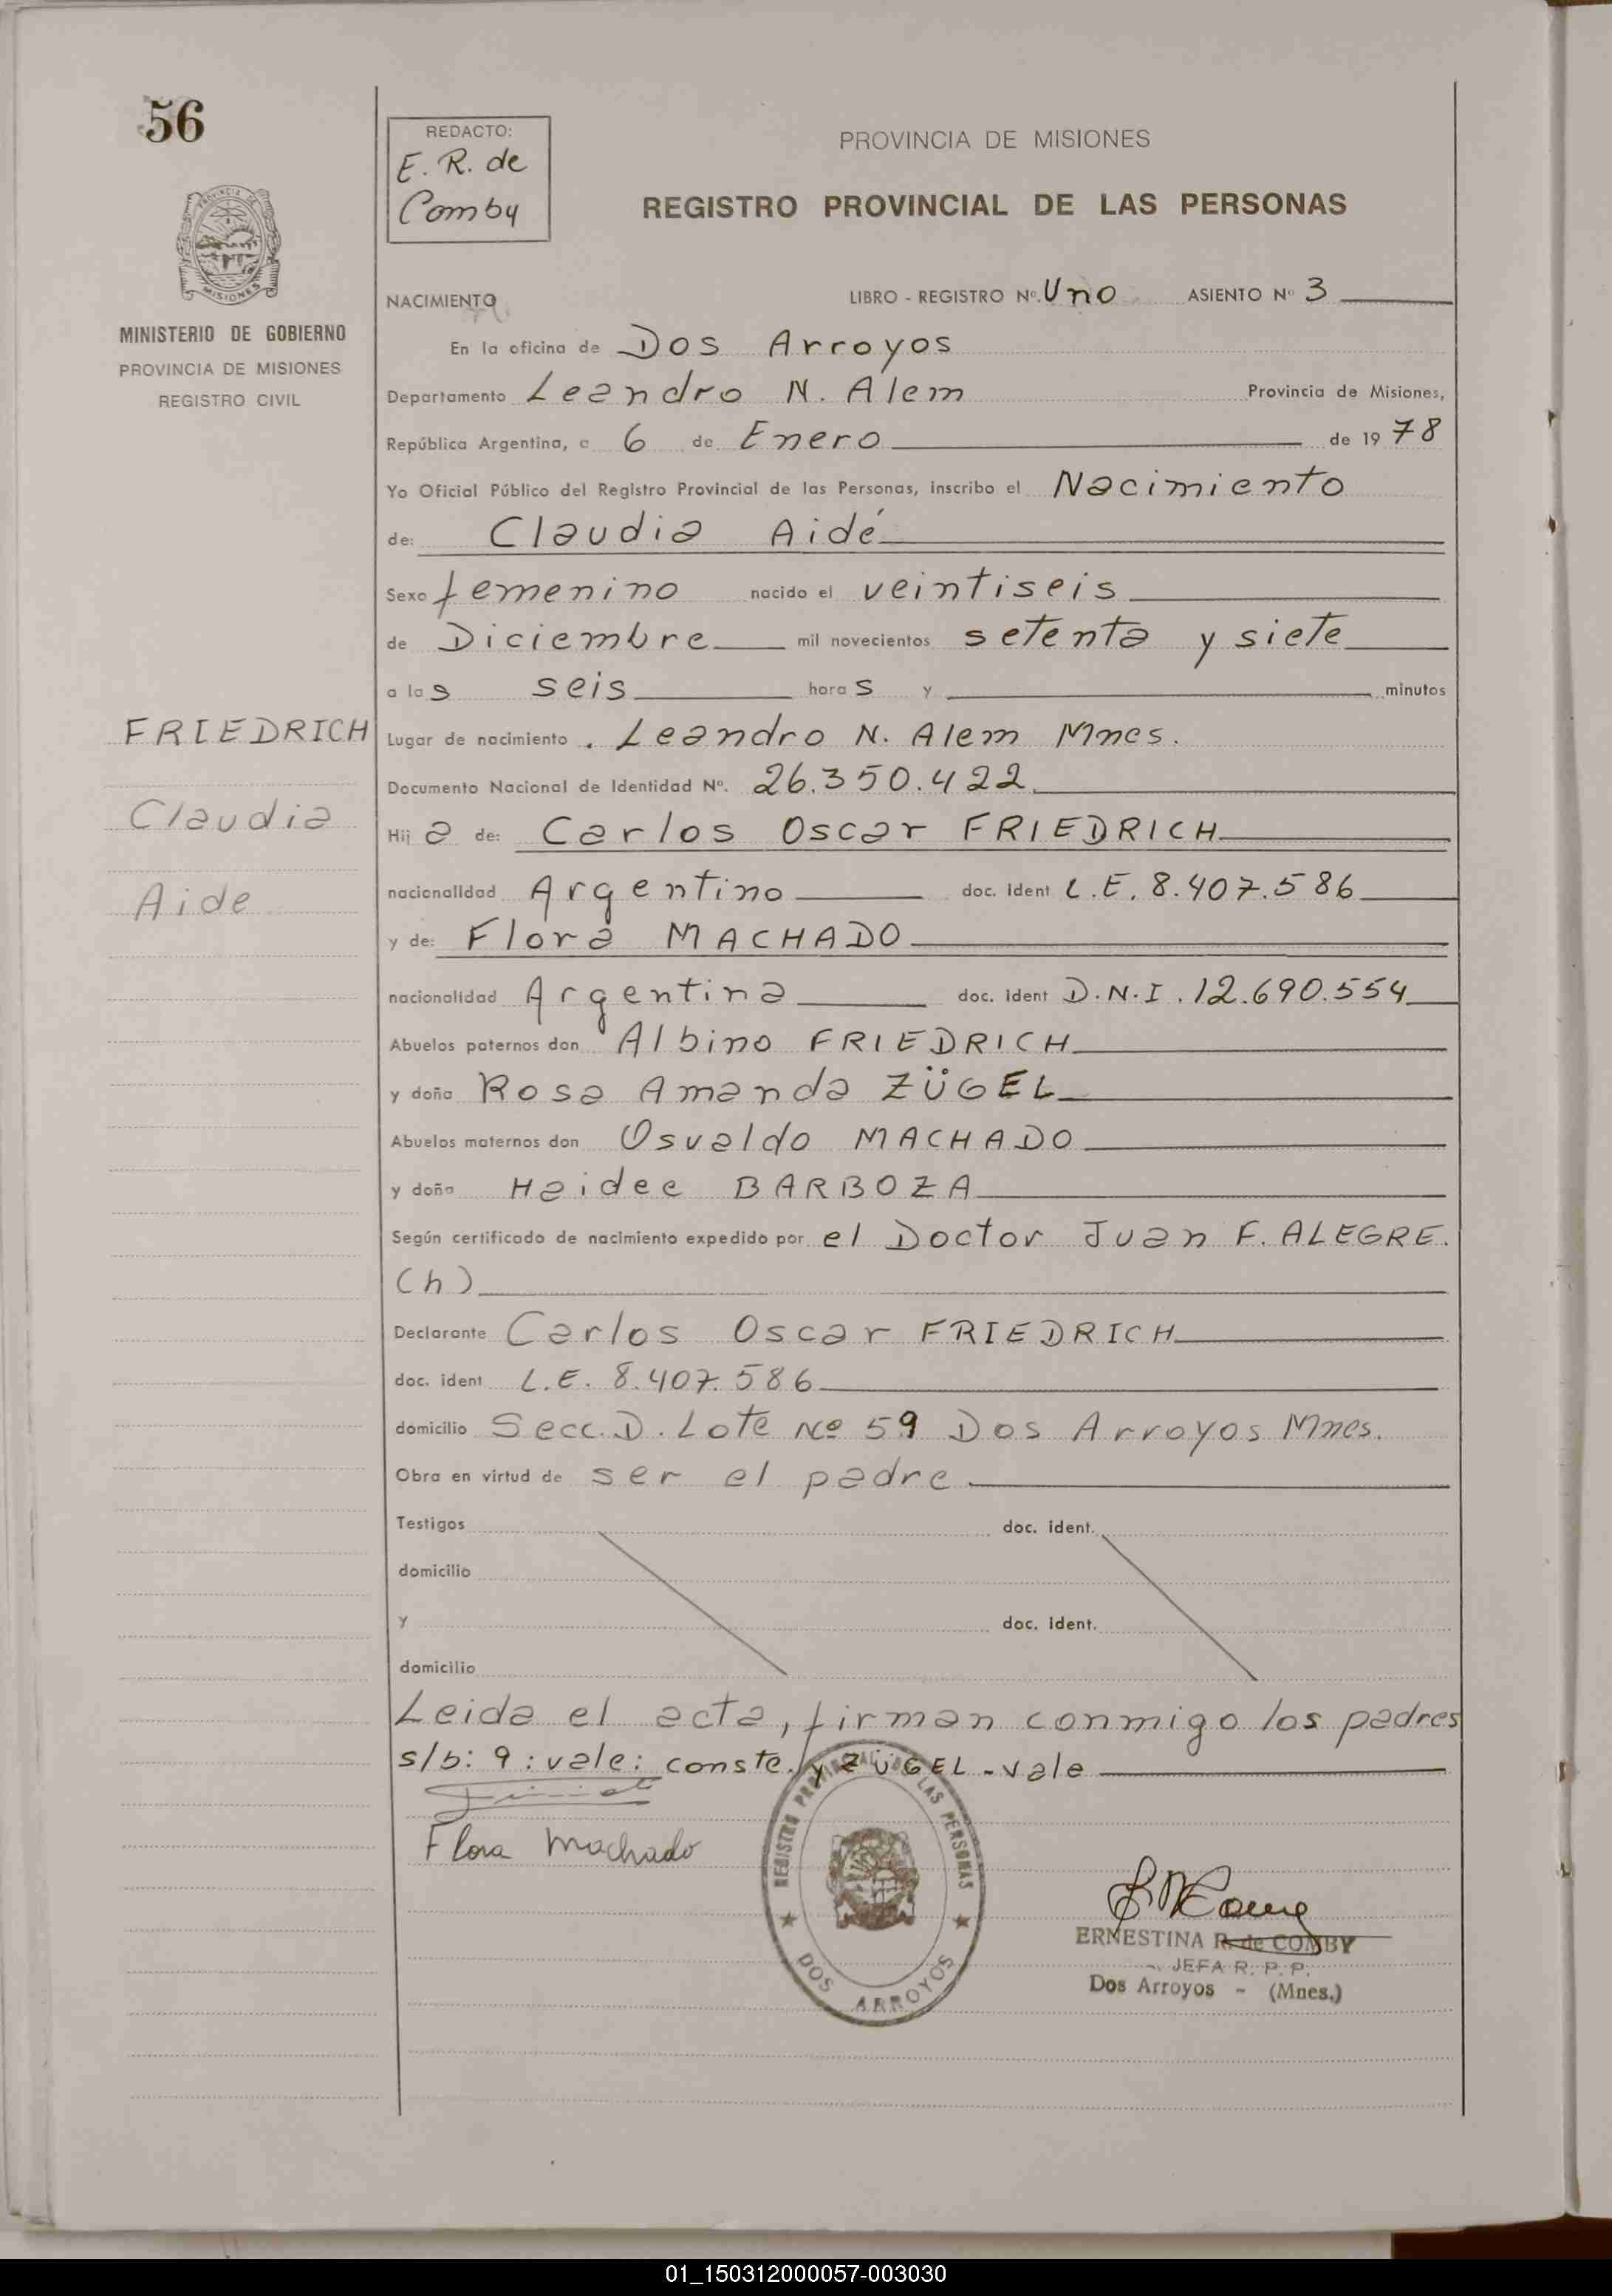 56
REDACTO:
E. R. de
Comby
PROVINCIA DE MISIONES
REGISTRO PROVINCIAL DE LAS PERSONAS
MISIONES
MINISTERIO DE GOBIERNO
PROVINCIA DE MISIONES
REGISTRO CIVIL
NACIMIENTO
LIBRO - REGISTRO Nº. Uno ASIENTO Nº 3
En la oficina de Dos Arroyos
Departamento Leandro N. Alem Provincia de Misiones,
República Argentina, a 6 de Enero de 1978
Yo Oficial Público del Registro Provincial de las Personas, inscribo el Nacimiento
de: Claudia Aidé
Sexo femenino nacido el veintiseis
de Diciembre mil novecientos setenta y siete
a las seis horas y minutos
FRIEDRICH
Claudia
Aide
Lugar de nacimiento . Leandro N. Alem Mnes.
Documento Nacional de Identidad Nº. 26.350.422
Hija de: Carlos Oscar FRIEDRICH
nacionalidad Argentino doc. ident L.E. 8.407.586
y de: Flora MACHADO
nacionalidad Argentina doc. ident D.N.I. 12.690.554
Abuelos paternos don Albino FRIEDRICH
y doña Rosa Amanda ZÜGEL
Abuelos maternos don Osvaldo MACHADO
y doña Haidee BARBOZA
Según certificado de nacimiento expedido por el Doctor Juan F. ALEGRE.
(h)
Declarante Carlos Oscar FRIEDRICH
doc. ident L.E. 8.407.586
domicilio Secc. D. Lote Nº 59 Dos Arroyos Mnes.
Obra en virtud de ser el padre
Testigos doc. ident.
domicilio
y doc. ident.
domicilio
Leida el acta, firman conmigo los padres
s/b: 9: vale: conste. y ZÜGEL - vale
Flora Machado
REGISTRO PROVINCIAL DE LAS PERSONAS
DOS ARROYOS
ERNESTINA R. de COMBY
JEFA R. P. P.
Dos Arroyos - (Mnes.)
01_150312000057-003030